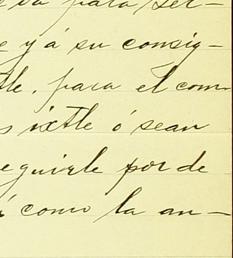 eva para ser-
e y á su consig-
tle, para el com
s ixtle ó sean
eguirle por de
í como la an-